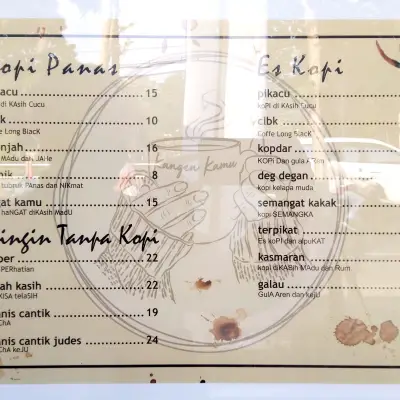 opi Panas
acu 15
di KAsih Cucu
k 10
e Long BlacK
njah 16
MAdu dan JAHe
nik 8
tubruk PAnas dan NIKmat
gat kamu 15
haNGAT diKAsih MadU
ingin Tanpa Kopi
per 22
PERhatian
ah kasih 22
KISA telaSIH
anis cantik 19
ChA
anis cantik judes 24
ChA keJU
Langen Kamu
Es Kopi
pikacu
koPi di KAsih Cucu
clbk
Coffe Long BlacK
kopdar
KOPi Dan gula ARen
deg degan
kopi kelapa muda
semangat kakak
kopi SEMANGKA
terpikat
Es koPI dan alpuKAT
kasmaran
kopi diKASih MAdu dan Rum
galau
GulA Aren dan kejU